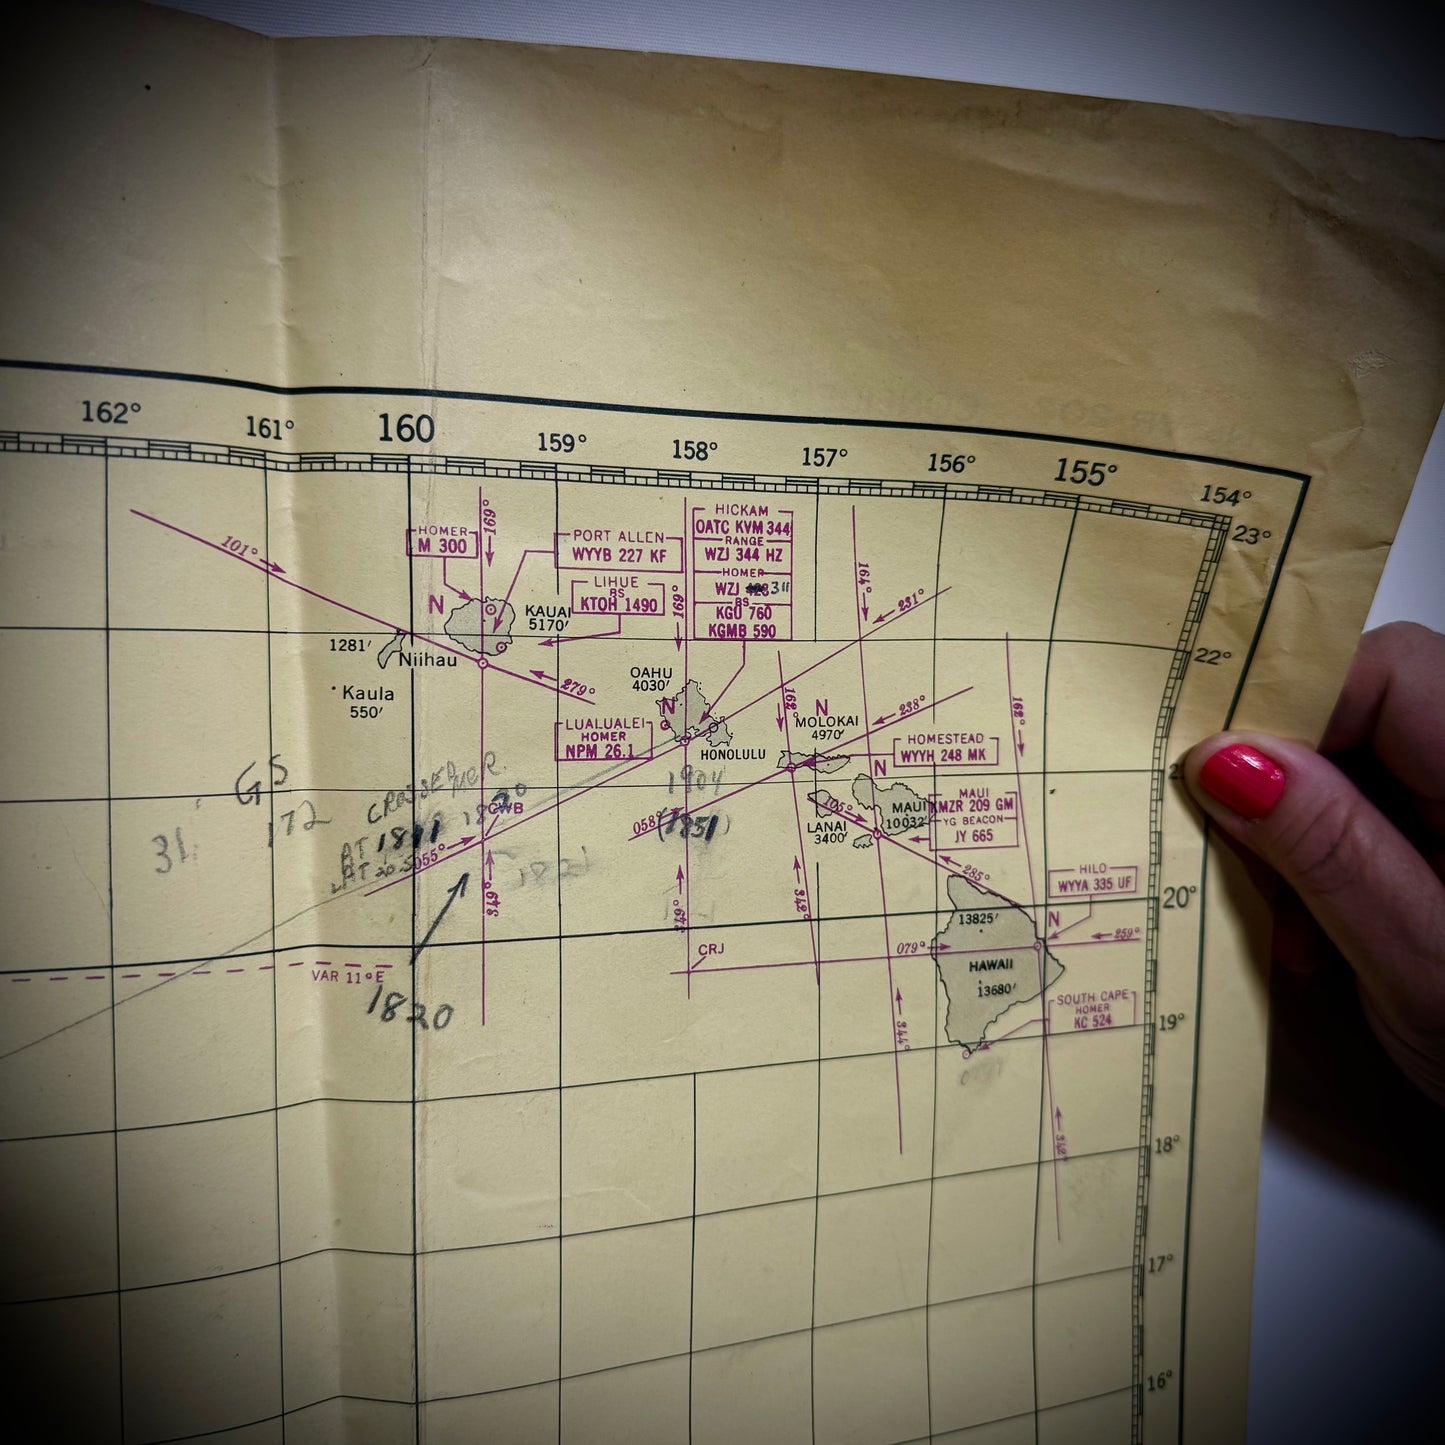 162°
161°
160
159°
158°
157°
156°
155°
154°
23°
22°
20°
19°
18°
17°
16°
101°
HOMER
M 300
169°
PORT ALLEN
WYYB 227 KF
LIHUE
BS
KTOH 1490
HICKAM
OATC KVM 344
RANGE
WZJ 344 HZ
HOMER
WZJ 311
BS
KGU 760
KGMB 590
169°
164°
231°
N
KAUAI
5170'
1281'
Niihau
Kaula
550'
279°
OAHU
4030'
N
LUALUALEI
HOMER
NPM 26.1
HONOLULU
162°
N
MOLOKAI
4970'
238°
162°
HOMESTEAD
WYYH 248 MK
N
MAUI
10032'
MAUI
KMZR 209 GM
YG BEACON
JY 665
105°
LANAI
3400'
285°
HILO
WYYA 335 UF
N
13825'
079°
259°
HAWAII
13680'
SOUTH CAPE
HOMER
KC 524
342°
344°
342°
349°
349°
CRJ
CWB
058°
1904
(1851)
GS
172
31
AT 1811
055°
VAR 11°E
1820